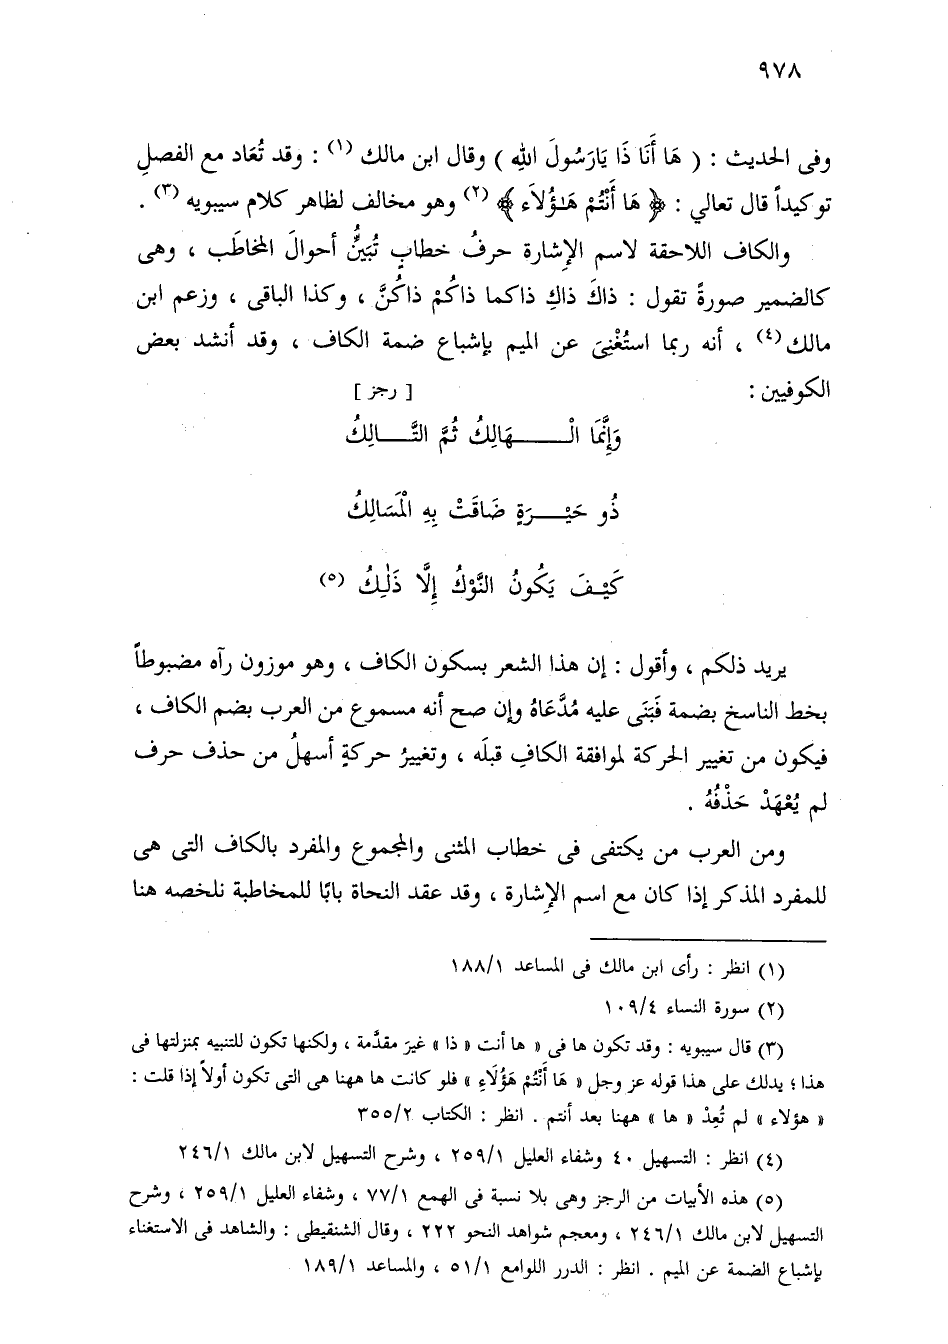 ٩٧٨
وفى الحديث : ( هَا أَنَا ذَا يَارَسُولَ اللهِ ) وقال ابن مالك (١) : وقد تُعَاد مع الفصلِ
توكيداً قال تعالي : ﴿ هَا أَنْتُمْ هَـٰؤُلَاء ﴾ (٢) وهو مخالف لظاهر كلام سيبويه (٣) .
والكاف اللاحقة لاسم الإشارة حرفُ خطابٍ تُبَيِّنُ أحوالَ المخاطَب ، وهى
كالضمير صورةً تقول : ذاكَ ذاكِ ذاكما ذاكُمْ ذاكُنَّ ، وكذا الباقى ، وزعم ابن
مالك (٤) ، أنه ربما استُغْنِىَ عن الميم بإشباع ضمة الكاف ، وقد أنشد بعض
الكوفيين : [ رجز ]
وَإِنَّمَا الْـــهَالِكُ ثُمَّ التَّـــالِكُ
ذُو حَيْـــرَةٍ ضَاقَتْ بِهِ الْمَسَالِكُ
كَيْـفَ يَكُونُ النَّوْكُ إِلَّا ذَلِكُ (٥)
يريد ذلكم ، وأقول : إن هذا الشعر بسكون الكاف ، وهو موزون رآه مضبوطاً
بخط الناسخ بضمة فَبَنَى عليه مُدَّعَاهُ وإن صح أنه مسموع من العرب بضم الكاف ،
فيكون من تغيير الحركة لموافقة الكافِ قبلَه ، وتغييرُ حركةٍ أسهلُ من حذف حرف
لم يُعْهَدْ حَذْفُهُ .
ومن العرب من يكتفى فى خطاب المثنى والمجموع والمفرد بالكاف التى هى
للمفرد المذكر إذا كان مع اسم الإشارة ، وقد عقد النحاة بابًا للمخاطبة نلخصه هنا
(١) انظر : رأى ابن مالك فى المساعد ١٨٨/١
(٢) سورة النساء ١٠٩/٤
(٣) قال سيبويه : وقد تكون ها فى « ها أنت « ذا » غيرَ مقدَّمة ، ولكنها تكون للتنبيه بمنزلتها فى
هذا ؛ يدلك على هذا قوله عز وجل « هَا أَنْتُمْ هَؤُلَاءِ » فلو كانت ها ههنا هى التى تكون أولاً إذا قلت :
« هؤلاء » لم تُعِدْ « ها » ههنا بعد أنتم . انظر : الكتاب ٣٥٥/٢
(٤) انظر : التسهيل ٤٠ وشفاء العليل ٢٥٩/١ ، وشرح التسهيل لابن مالك ٢٤٦/١
(٥) هذه الأبيات من الرجز وهى بلا نسبة فى الهمع ٧٧/١ ، وشفاء العليل ٢٥٩/١ ، وشرح
التسهيل لابن مالك ٢٤٦/١ ، ومعجم شواهد النحو ٢٢٢ ، وقال الشنقيطى : والشاهد فى الاستغناء
بإشباع الضمة عن الميم . انظر : الدرر اللوامع ٥١/١ ، والمساعد ١٨٩/١